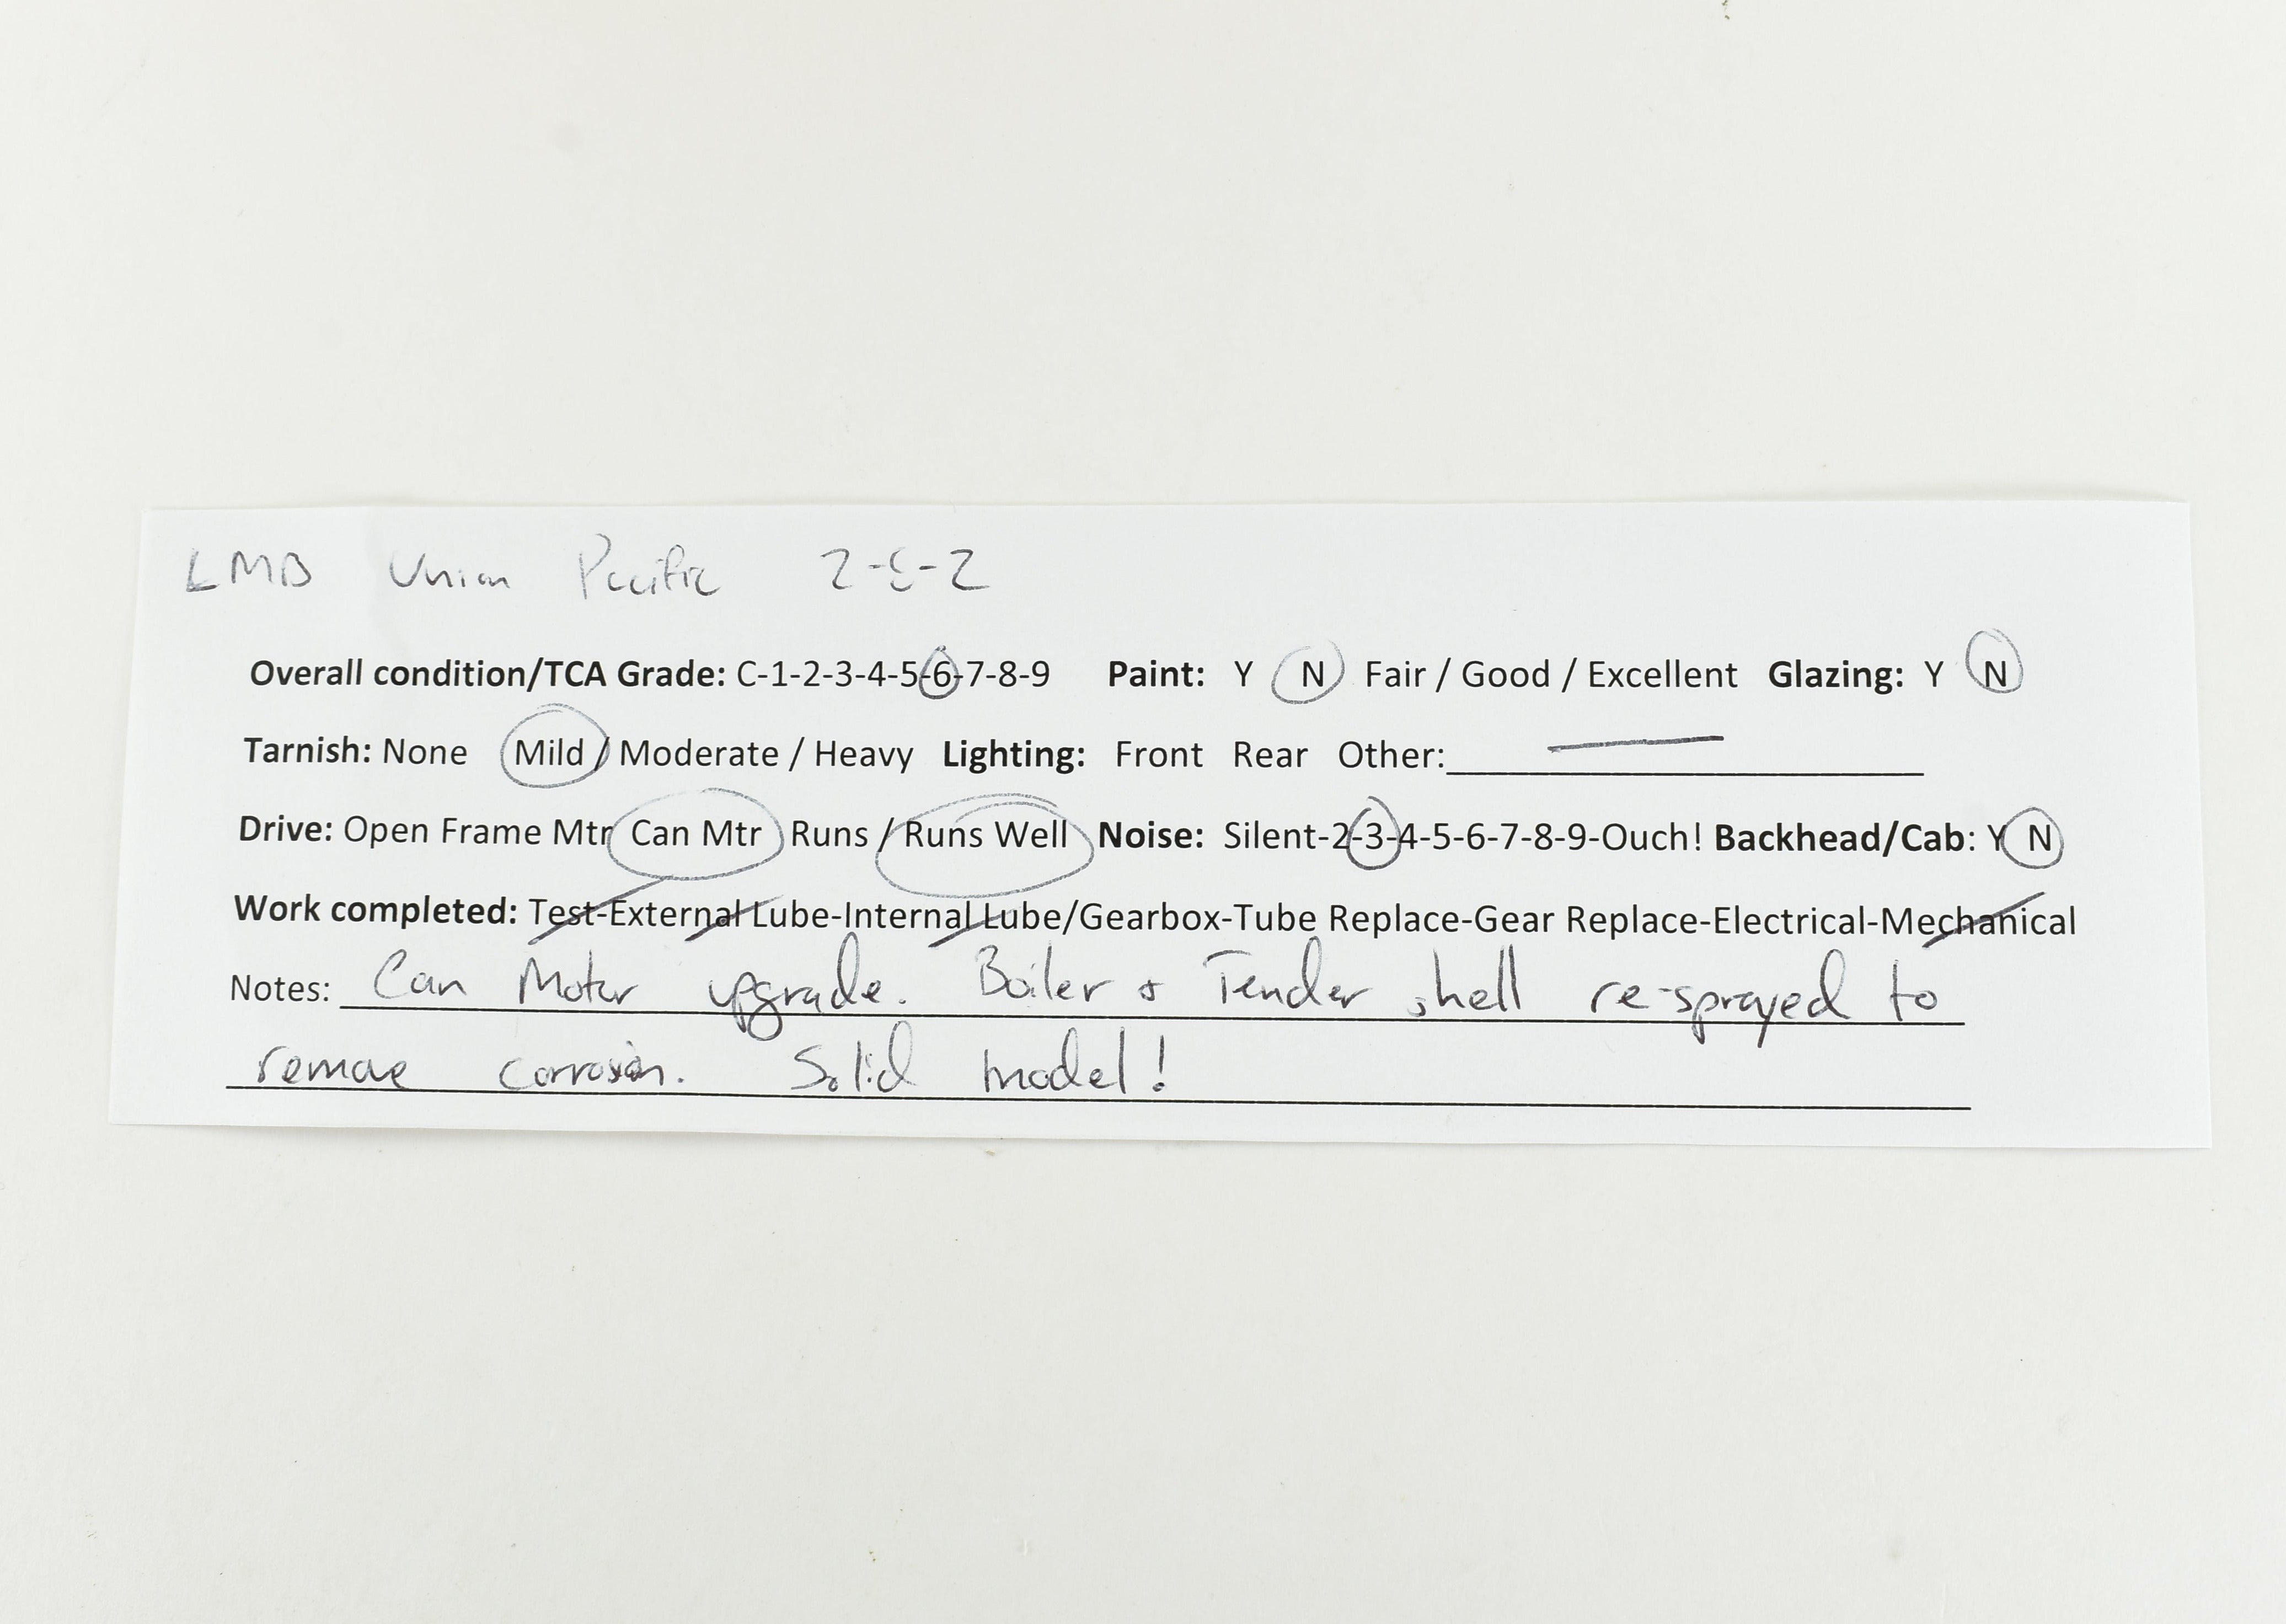 LMB Union Pacific 2-8-2
Overall condition/TCA Grade: C-1-2-3-4-5-6-7-8-9 Paint: Y N Fair / Good / Excellent Glazing: Y N
Tarnish: None Mild / Moderate / Heavy Lighting: Front Rear Other:
Drive: Open Frame Mtr Can Mtr Runs / Runs Well Noise: Silent-2-3-4-5-6-7-8-9-Ouch! Backhead/Cab: Y N
Work completed: Test-External Lube-Internal Lube/Gearbox-Tube Replace-Gear Replace-Electrical-Mechanical
Notes: Can Motor upgrade. Boiler & Tender shell re-sprayed to
remove corrosion. Solid model!